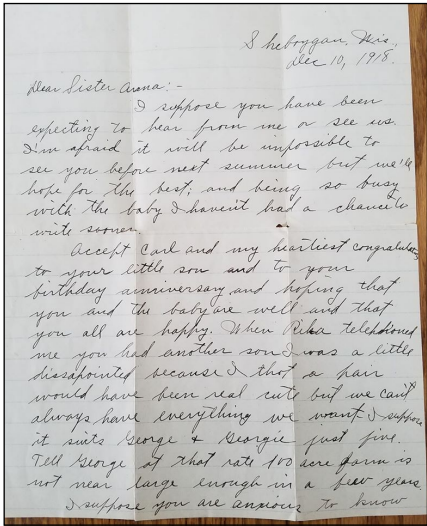 Sheboygan, Wis.,
Dec 10, 1918.
Dear Sister Arena:-
I suppose you have been
expecting to hear from me or see us.
I'm afraid it will be impossible to
see you before next summer but we'll
hope for the best; and being so busy
with the baby I haven't had a chance to
write sooner.
Accept Carl and my heartiest congratulations
to your little son and to your
birthday anniversary and hoping that
you and the baby are well and that
you all are happy. When Rika telephoned
me you had another son I was a little
dissapointed because I thot a pair
would have been real cute but we can't
always have everything we want. I suppose
it suits George & Georgie just fine.
Tell George at that rate 100 acre farm is
not near large enough in a few years.
I suppose you are anxious to know